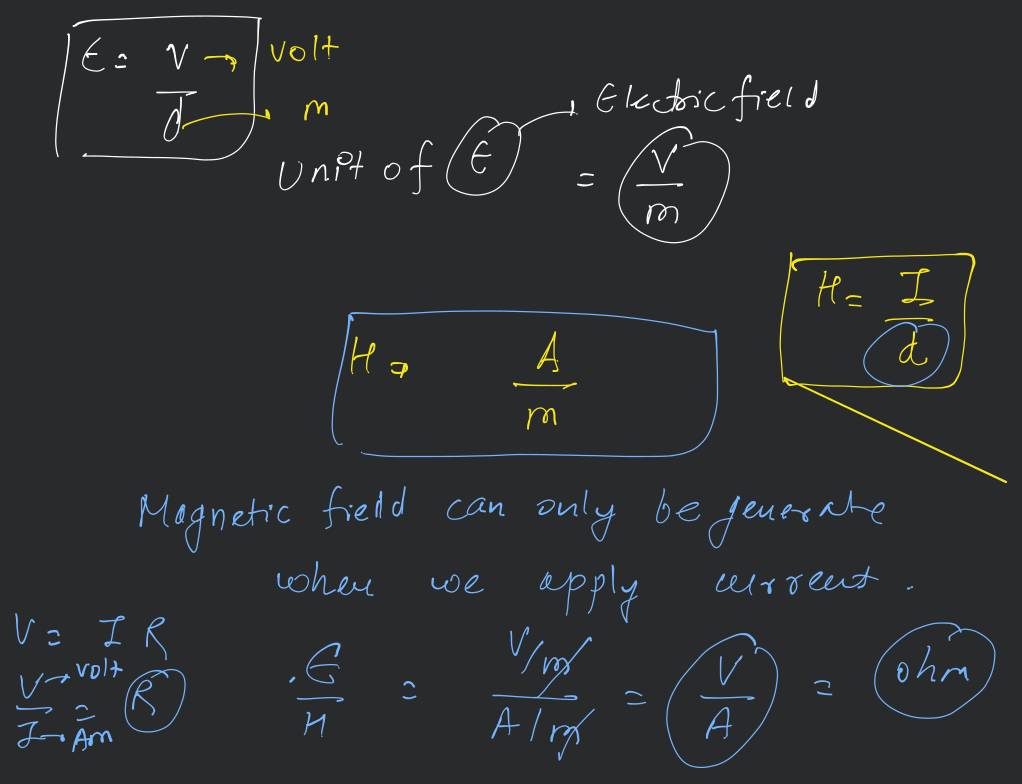 E = V/d → volt
→ m
Unit of E → Electric field = V/m
H = I/d
H = A/m
Magnetic field can only be generate
when we apply current.
V = I R
V → volt
I → Am = R
E/H = V/m / A/m = V/A = ohm